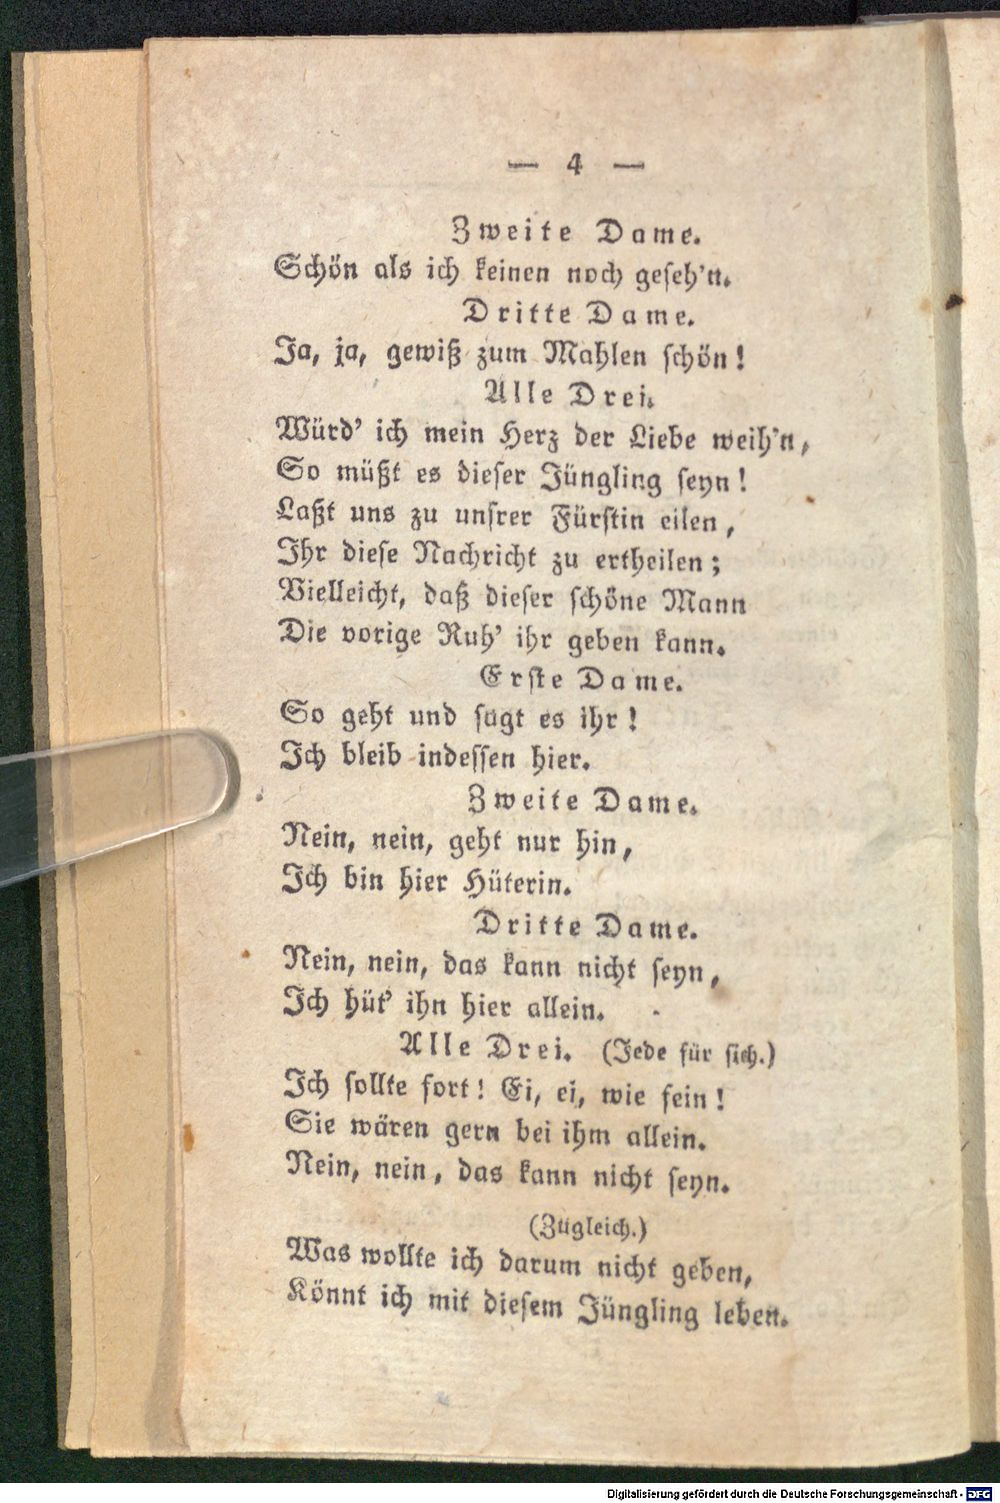 — 4 —
Zweite Dame.
Schön als ich keinen noch geseh'n.
Dritte Dame.
Ja, ja, gewiß zum Mahlen schön!
Alle Drei.
Würd' ich mein Herz der Liebe weih'n,
So müßt es dieser Jüngling seyn!
Laßt uns zu unsrer Fürstin eilen,
Ihr diese Nachricht zu ertheilen;
Vielleicht, daß dieser schöne Mann
Die vorige Ruh' ihr geben kann.
Erste Dame.
So geht und sagt es ihr!
Ich bleib indessen hier.
Zweite Dame.
Nein, nein, geht nur hin,
Ich bin hier Hüterin.
Dritte Dame.
Nein, nein, das kann nicht seyn,
Ich hüt' ihn hier allein.
Alle Drei. (Jede für sich.)
Ich sollte fort! Ei, ei, wie fein!
Sie wären gern bei ihm allein.
Nein, nein, das kann nicht seyn.
(Zugleich.)
Was wollte ich darum nicht geben,
Könnt ich mit diesem Jüngling leben.
Digitalisierung gefördert durch die Deutsche Forschungsgemeinschaft - DFG